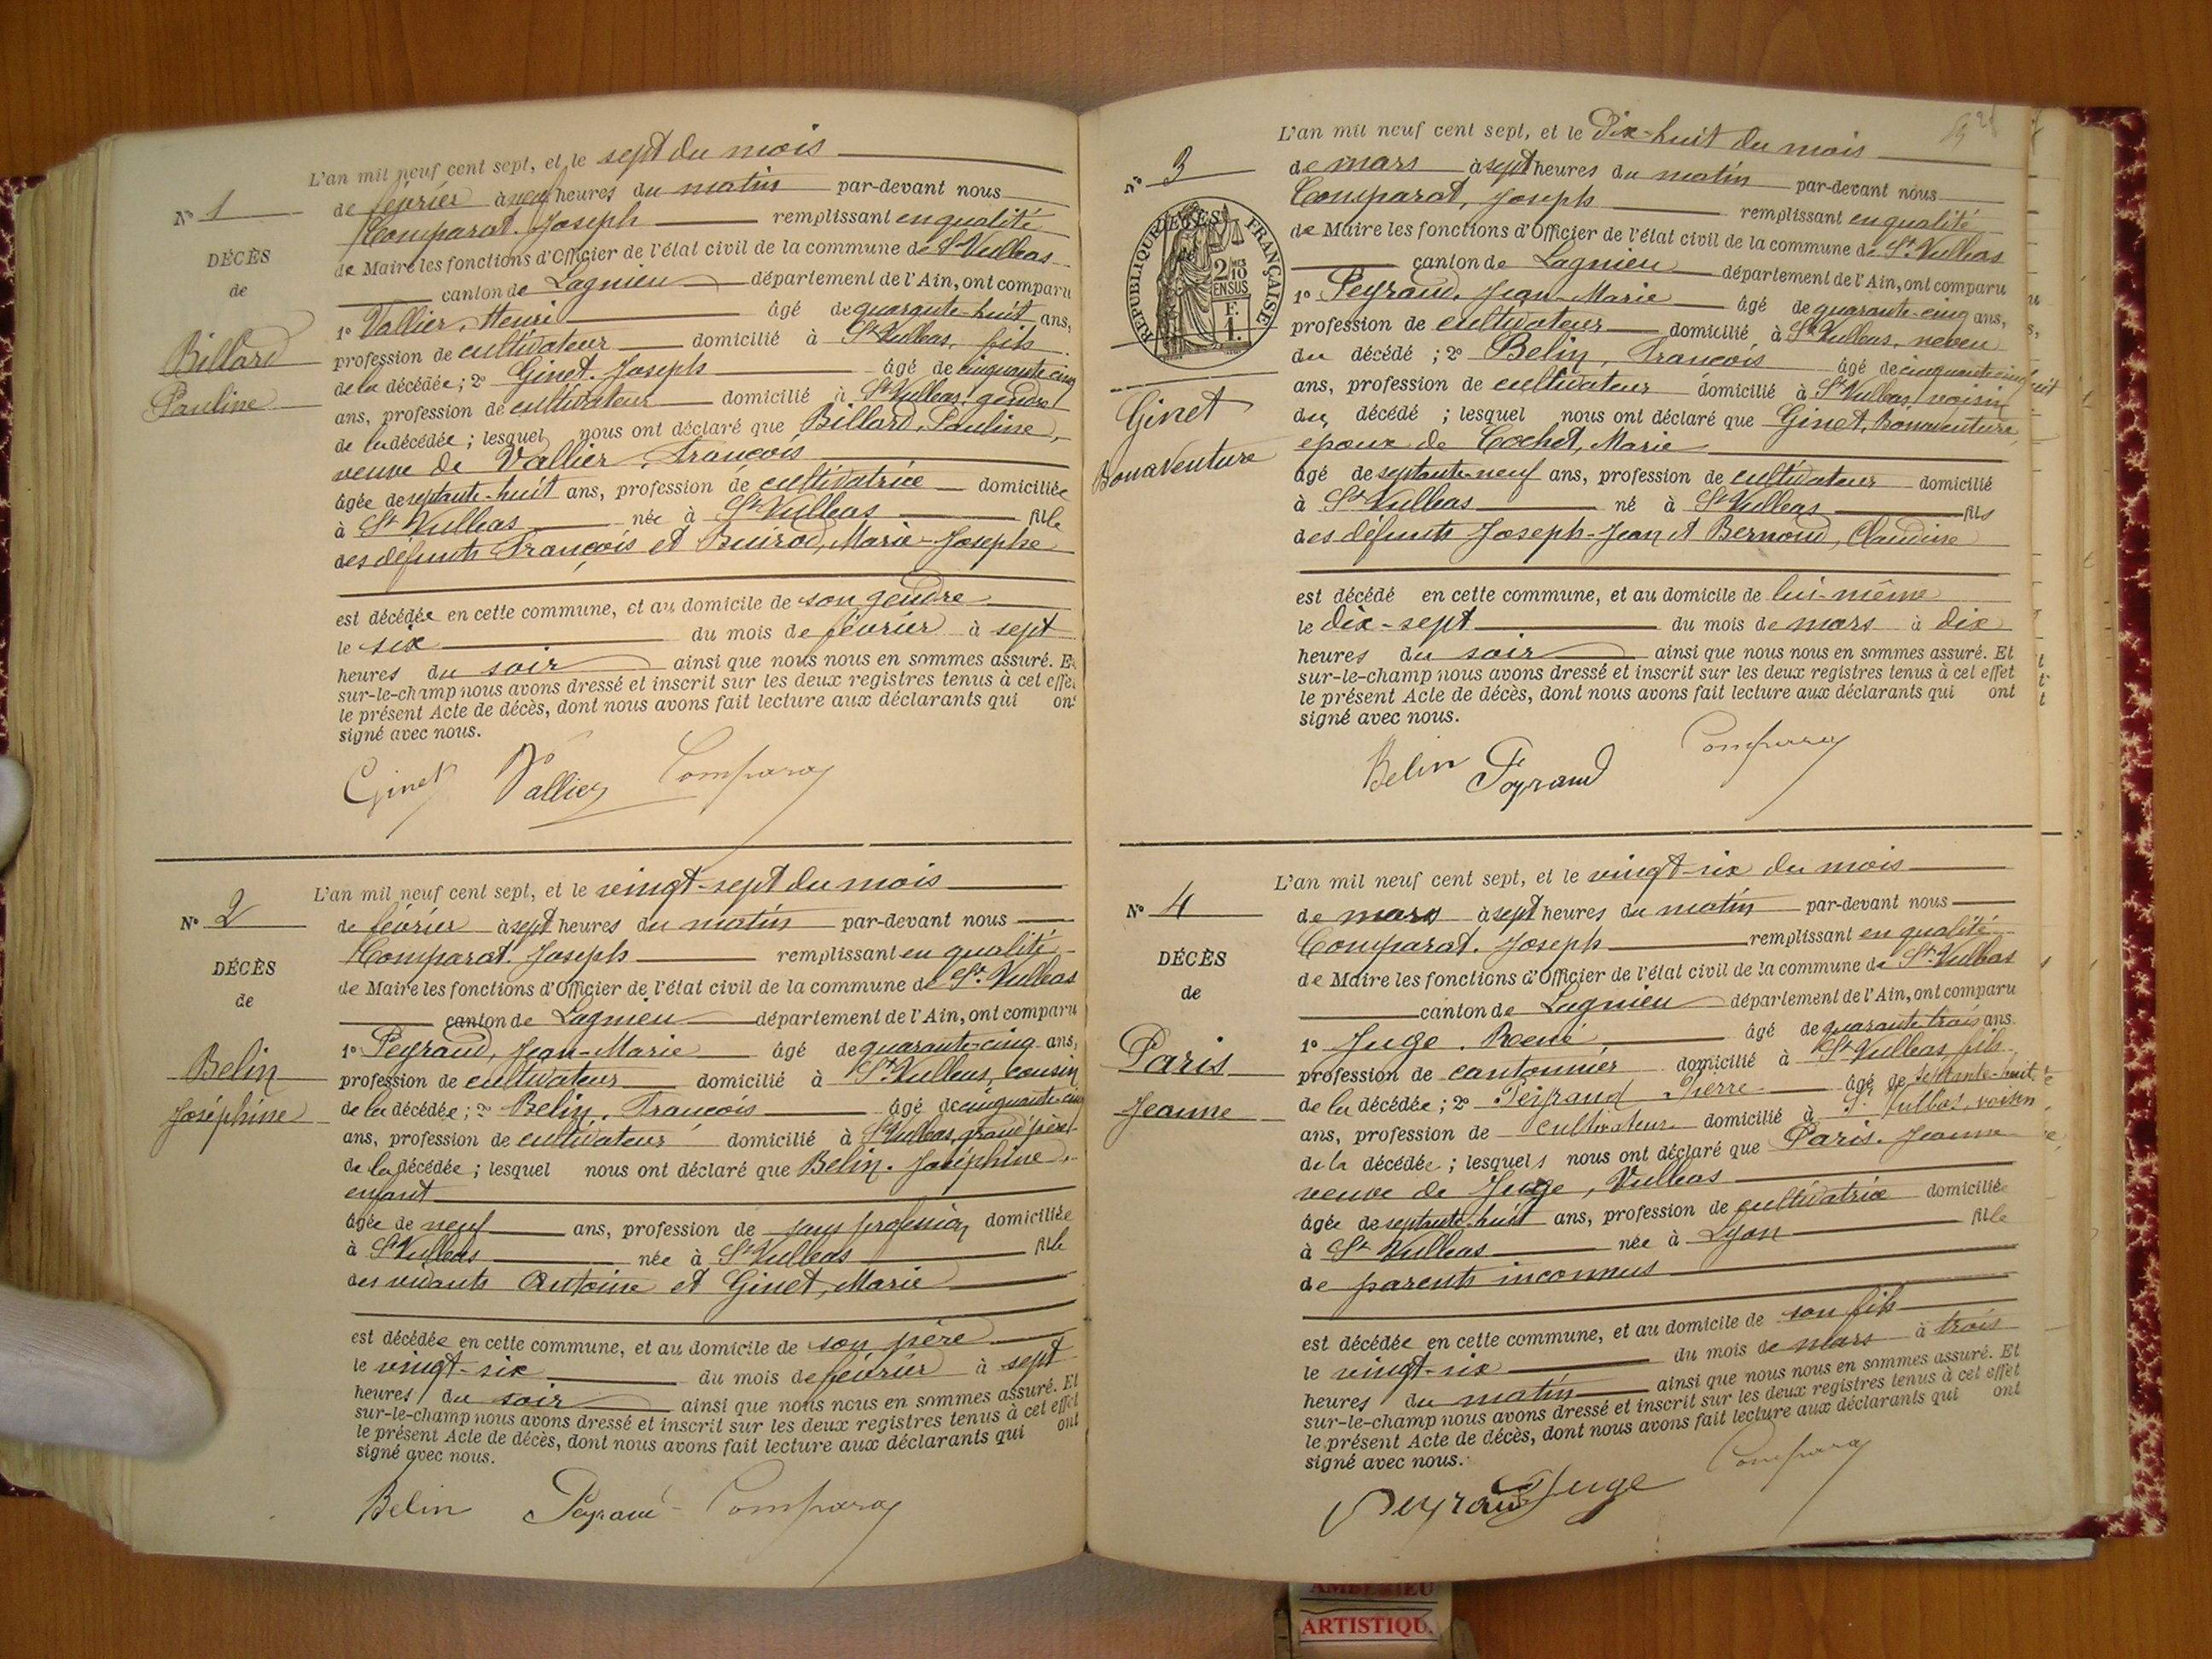 L'an mil neuf cent sept, et le sept du mois
de février à neuf heures du matin par-devant nous
Comparat, Joseph remplissant en qualité
de Maire les fonctions d'Officier de l'état civil de la commune de St Vulbas
canton de Lagnieu département de l'Ain, ont comparu
1º Vallier, Henri âgé de quarante-huit ans,
profession de cultivateur domicilié à St Vulbas, fils
de la décédée ; 2º Ginet, Joseph âgé de cinquante cinq
ans, profession de cultivateur domicilié à St Vulbas, gendre
de la décédée ; lesquel nous ont déclaré que Billard, Pauline,
veuve de Vallier, François
âgée de septante-huit ans, profession de cultivatrice domiciliée
à St Vulbas née à St Vulbas fille
des défunts François et Buirod, Marie-Josephe
est décédée en cette commune, et au domicile de son gendre
le six du mois de février à sept
heures du soir ainsi que nous nous en sommes assuré. Et
sur-le-champ nous avons dressé et inscrit sur les deux registres tenus à cet effet
le présent Acte de décès, dont nous avons fait lecture aux déclarants qui ont
signé avec nous.
Ginet Vallier Comparat
Nº 1
DÉCÈS
de
Billard
Pauline
L'an mil neuf cent sept, et le vingt-sept du mois
de février à sept heures du matin par-devant nous
Comparat, Joseph remplissant en qualité
de Maire les fonctions d'Officier de l'état civil de la commune de St Vulbas
canton de Lagnieu département de l'Ain, ont comparu
1º Peyraud, Jean-Marie âgé de quarante-cinq ans,
profession de cultivateur domicilié à St Vulbas, cousin
de la décédée ; 2º Belin, François âgé de cinquante-cinq
ans, profession de cultivateur domicilié à St Vulbas, grand'père
de la décédée ; lesquel nous ont déclaré que Belin, Joséphine,
enfant
âgée de neuf ans, profession de sans profession domiciliée
à St Vulbas née à St Vulbas fille
des vivants Antoine et Ginet, Marie
est décédée en cette commune, et au domicile de son père
le vingt-six du mois de février à sept
heures du soir ainsi que nous nous en sommes assuré. Et
sur-le-champ nous avons dressé et inscrit sur les deux registres tenus à cet effet
le présent Acte de décès, dont nous avons fait lecture aux déclarants qui ont
signé avec nous.
Belin Peyraud Comparat
Nº 2
DÉCÈS
de
Belin
Joséphine
L'an mil neuf cent sept, et le Dix-huit du mois
de mars à sept heures du matin par-devant nous
Comparat, Joseph remplissant en qualité
de Maire les fonctions d'Officier de l'état civil de la commune de St Vulbas
canton de Lagnieu département de l'Ain, ont comparu
1º Peyraud, Jean-Marie âgé de quarante-cinq ans,
profession de cultivateur domicilié à St Vulbas, neveu
du décédé ; 2º Belin, François âgé de cinquante-cinq
ans, profession de cultivateur domicilié à St Vulbas, voisin
du décédé ; lesquel nous ont déclaré que Ginet, Bonaventure
epoux de Cochet, Marie
âgé de septante-neuf ans, profession de cultivateur domicilié
à St Vulbas né à St Vulbas fils
des défunts Joseph-Jean et Bernoud, Claudine
est décédé en cette commune, et au domicile de lui-même
le dix-sept du mois de mars à dix
heures du soir ainsi que nous nous en sommes assuré. Et
sur-le-champ nous avons dressé et inscrit sur les deux registres tenus à cet effet
le présent Acte de décès, dont nous avons fait lecture aux déclarants qui ont
signé avec nous.
Belin Peyraud Comparat
Nº 3
RÉPUBLIQUE FRANÇAISE
2/10
EN SUS
F.
1.
Ginet
Bonaventure
L'an mil neuf cent sept, et le vingt-six du mois
de mars à sept heures du matin par-devant nous
Comparat, Joseph remplissant en qualité
de Maire les fonctions d'Officier de l'état civil de la commune de St Vulbas
canton de Lagnieu département de l'Ain, ont comparu
1º Juge, René, âgé de quarante trois ans
profession de cantonnier domicilié à St Vulbas, fils
de la décédée ; 2º Peyraud Pierre âgé de septante-huit
ans, profession de cultivateur domicilié à St Vulbas, voisin
de la décédée ; lesquels nous ont déclaré que Paris, Jeanne
veuve de Juge, Vulbas
âgée de septante-huit ans, profession de cultivatrice domiciliée
à St Vulbas née à Lyon fille
de parents inconnus
est décédée en cette commune, et au domicile de son fils
le vingt-six du mois de mars à trois
heures du matin ainsi que nous nous en sommes assuré. Et
sur-le-champ nous avons dressé et inscrit sur les deux registres tenus à cet effet
le présent Acte de décès, dont nous avons fait lecture aux déclarants qui ont
signé avec nous.
Peyraud Juge Comparat
Nº 4
DÉCÈS
de
Paris
Jeanne
ARTISTIQU